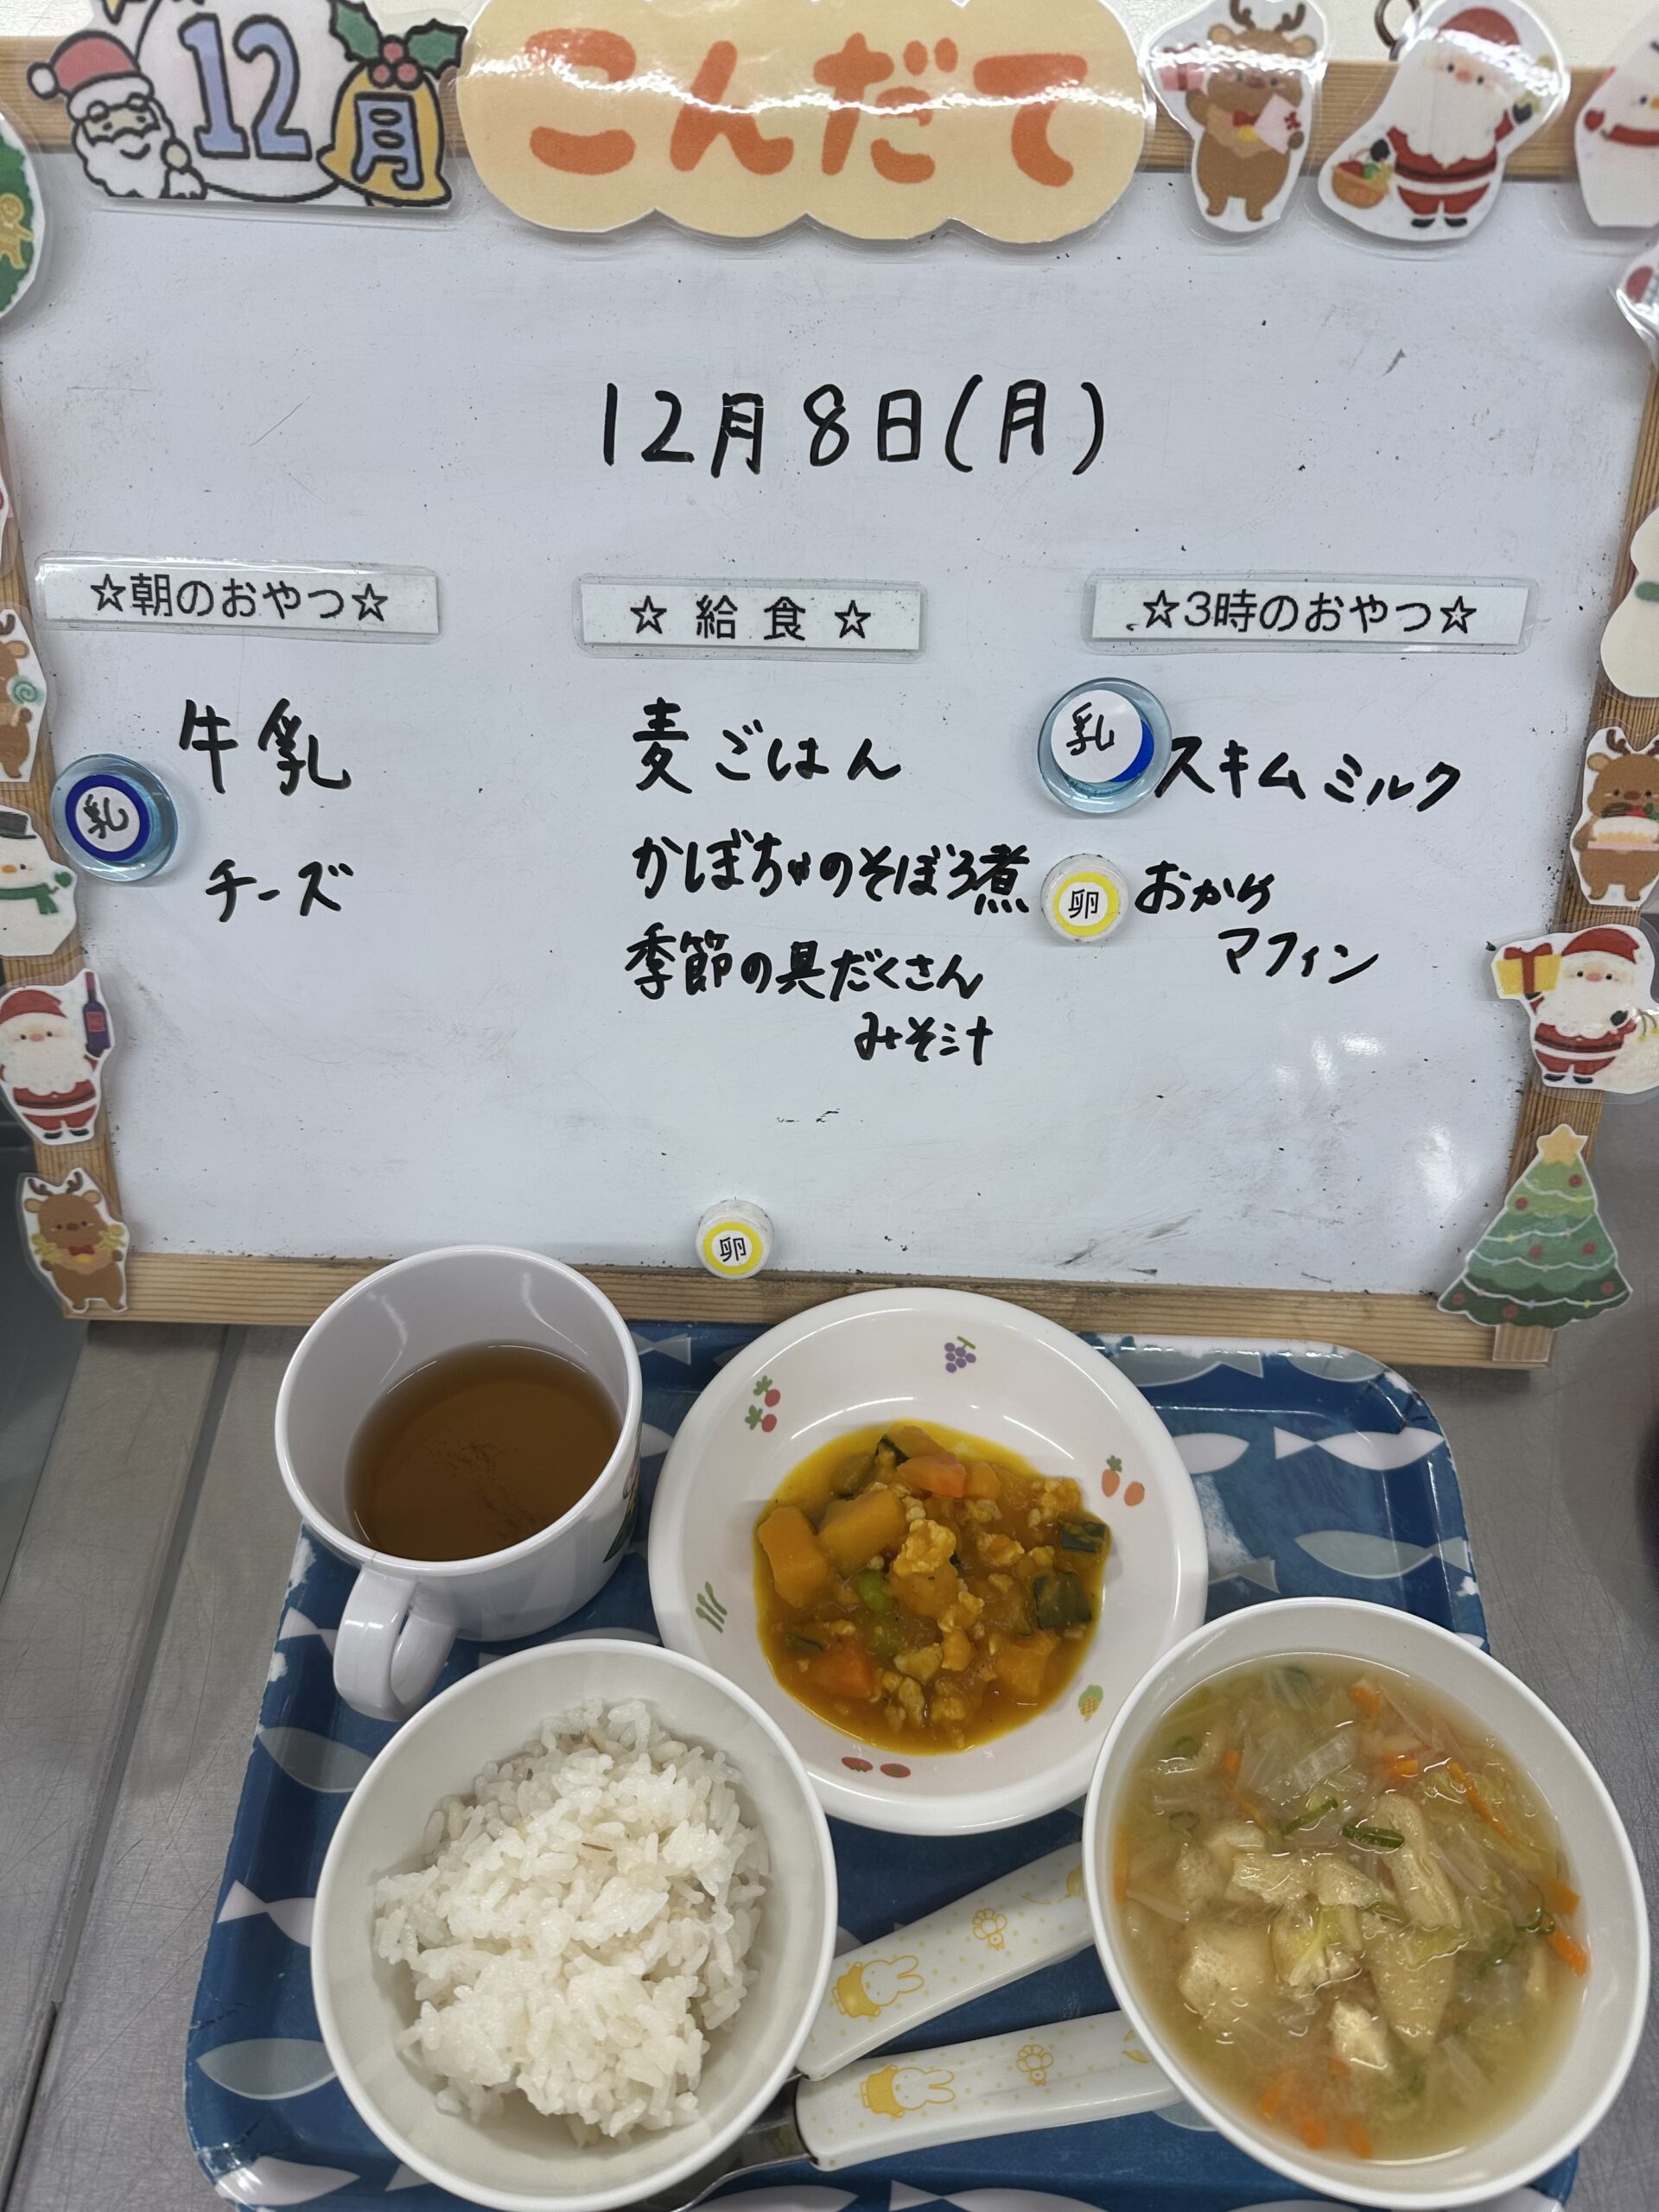 12月
こんだて
12月8日(月)
☆朝のおやつ☆
牛乳
乳
チーズ
☆給食☆
麦ごはん
かぼちゃのそぼろ煮
季節の具だくさん
みそ汁
☆3時のおやつ☆
乳 スキムミルク
卵 おかけ
マフィン
卵